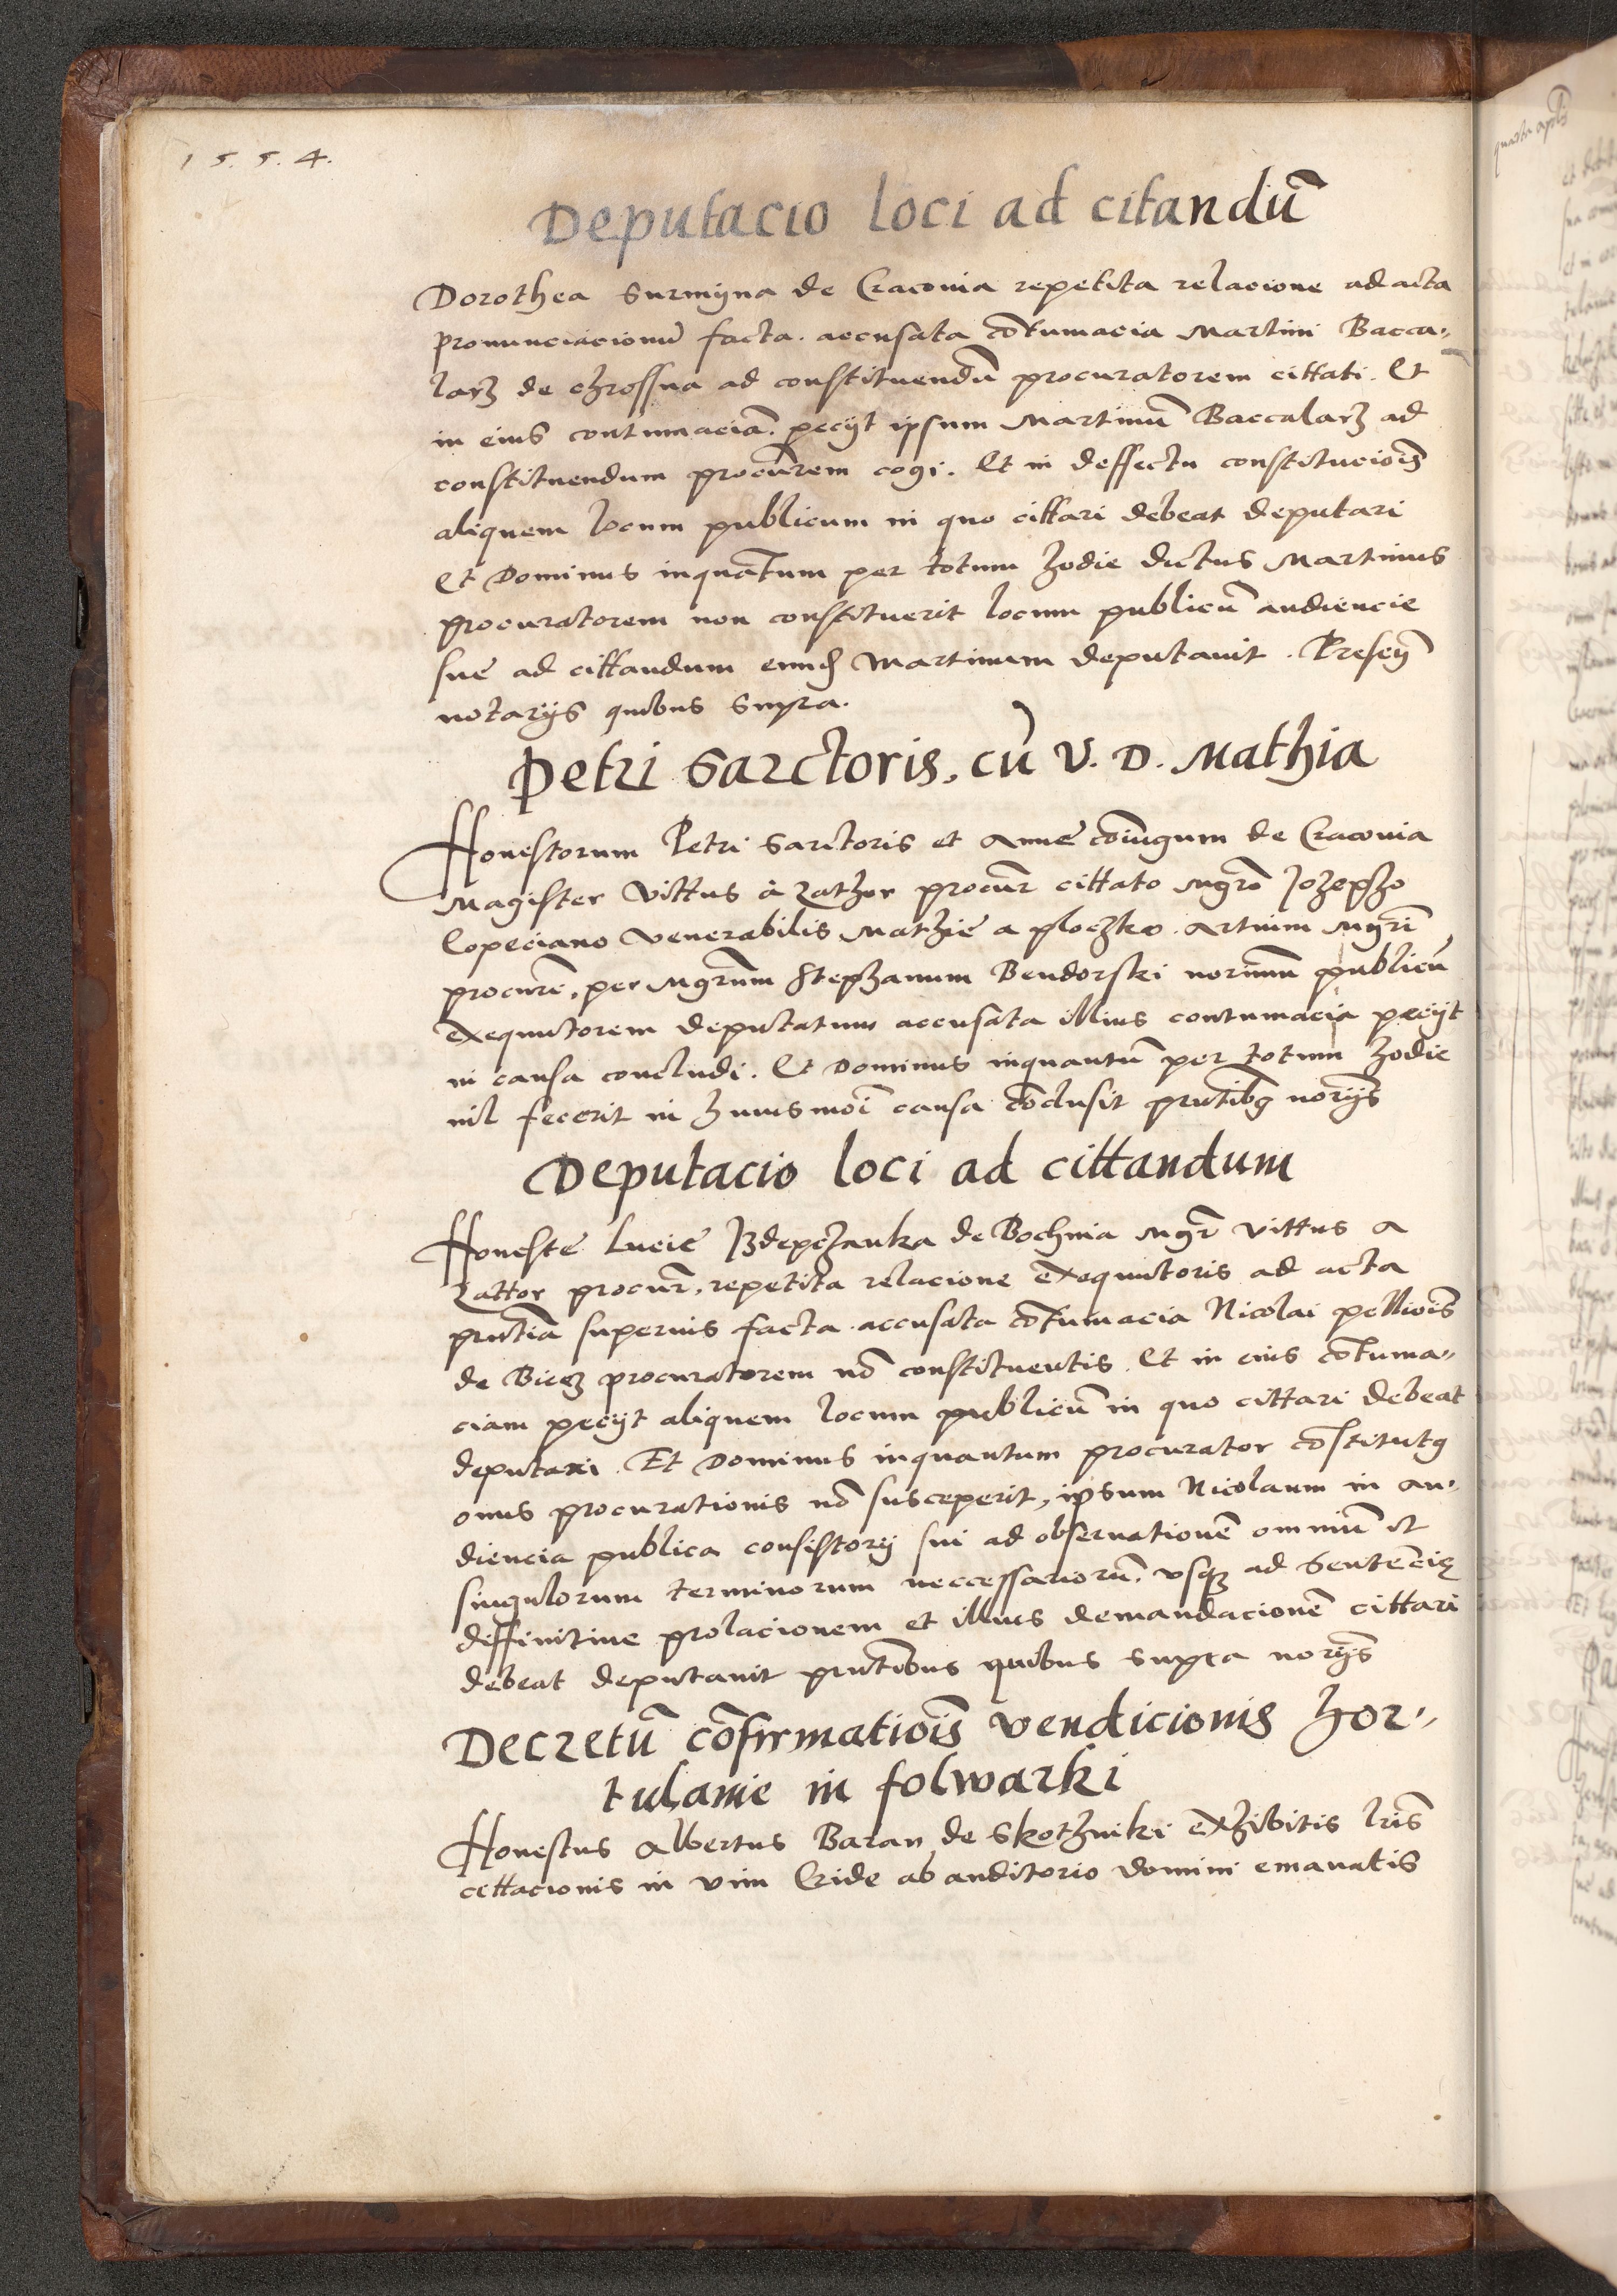 1 5. 5. 4.
Deputacio loci ad citandū
Dorothea Surmijna de Cracovia repetita relacione ad acta
pronunciacionū facta. accusata cōtumacia Martini Bacca„
larz de chrossna ad constituendū procuratorem cittati. Et
in eius contumaciā. peciit ipsum Martinū Baccalarz ad
constituendum procūrem cogi. Et in deffectu constitucioīs
aliquem locum publicum in quo cittari debeat deputari
Et Dominus inquātum per totum hodie dictus Martinus
procuratorem non constituerit locum publicū audiencie
sue ad cittandum eund Martinum deputauit. Presen̄
notarijs quibus supra.
Petri Sarctoris, cū V. D. Mathia
Honestorum Petri Sarctoris et Anne cōiugum de Cracovia
Magister Vittus à Zathor procūr cittato Mgrō Jozepho
Copeciano Venerabilis Mathie a ploczko. Artium Mgrī
procurē, per Mgrūm Stephanum Bendorski norium publicū
exequutorem deputatum accusata illius contumacia peciit
in causa concludi. Et Dominus inquantū per totum hodie
nil fecerit in huiusmoī causa cōclusit prntibg norijs
Deputacio loci ad cittandum
Honeste Lucie Jzdepczanka de Bochnia Mgr̄ Vittus a
Zattor procur̄, repetita relacione exequutoris ad acta
prntiā superius facta. accusata cōtumacia Nicolai pellioīs
de Biecz procuratorem nō constituentis. Et in eius cōtuma„
ciam peciit aliquem locum publicū in quo cittari debeat
deputari. Et Dominus inquantum procurator cōstitutg
onus procurationis nō susceperit, ipsum Nicolaum in au„
diencia publica consistorij sui ad obseruationē omniū et
singulorum terminorum neccessariorū. vsqz ad sentēcię
diffinitiue prolacionem et illius demandacionē cittari
debeat deputauit prntibus quibus supra norijs
Decretū cōfirmatioīs vendicionis hor„
tulanie in folwarki
Honestus Albertus Baran de Skothniki exhibitis lr̄is
cittacionis in vim Cride ab auditorio Domini emanatis